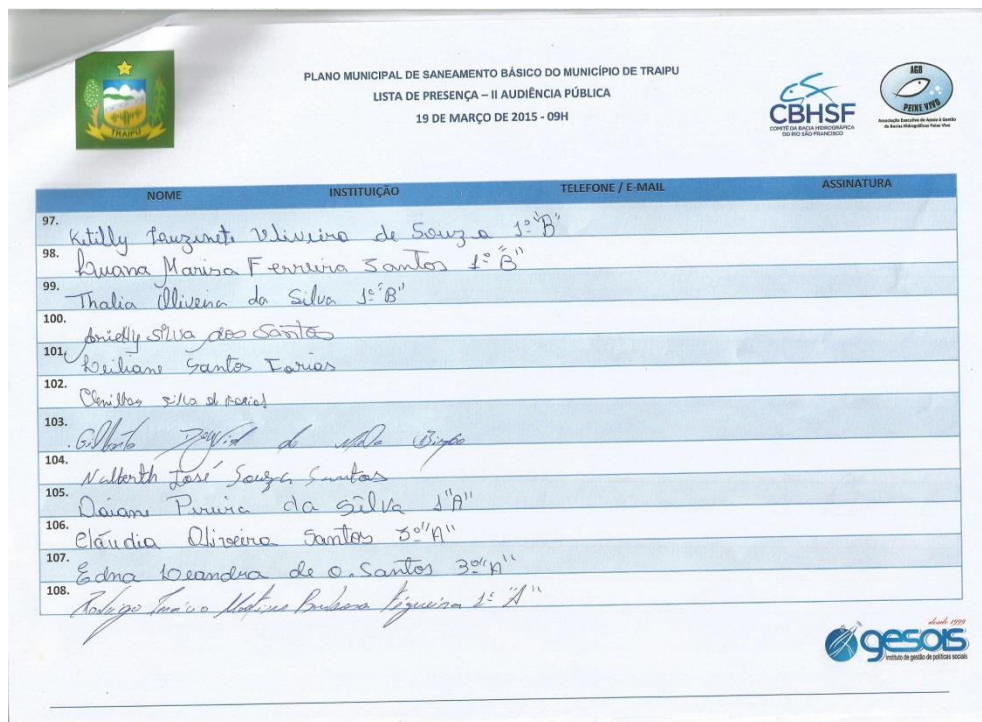 PLANO MUNICIPAL DE SANEAMENTO BÁSICO DO MUNICÍPIO DE TRAIPU
LISTA DE PRESENÇA – II AUDIÊNCIA PÚBLICA
19 DE MARÇO DE 2015 - 09H
TRAIPU
CBHSF
COMITÊ DA BACIA HIDROGRÁFICA
DO RIO SÃO FRANCISCO
AGB
PEIXE VIVO
Associação Executiva de Apoio à Gestão
de Bacias Hidrográficas Peixe Vivo
NOME INSTITUIÇÃO TELEFONE / E-MAIL ASSINATURA
97. Ketilly de Souza 1º "B"
98. Luana Marisa Ferreira Santos 1º "B"
99. Thalia Oliveira da Silva 1º "B"
100. Arielly Silva dos Santos
101. Leiliane Santos Farias
102. Silva
103. Gilberto
104. Nalberth José Souza Santos
105. Daiane Pereira da Silva 1º "A"
106. Cláudia Oliveira Santos 3º "A"
107. Edna Leandra de O. Santos 3º "A"
108. Rodrigo 1º "A"
desde 1999
gesois
instituto de gestão de políticas sociais